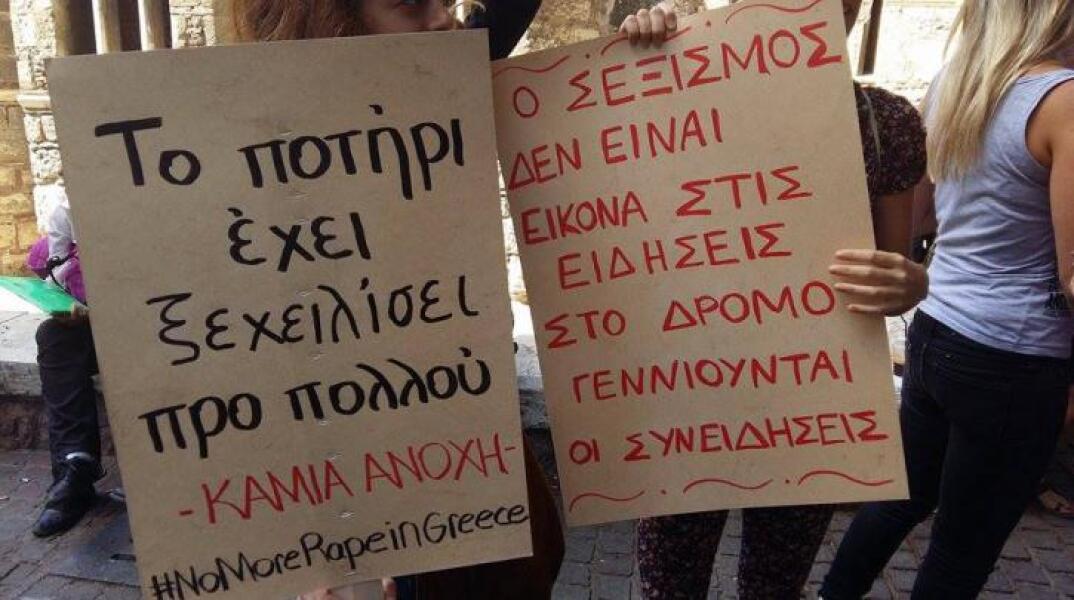 Το ποτήρι
έχει
ξεχειλίσει
προ πολλού
-ΚΑΜΙΑ ΑΝΟΧΗ-
#NoMoreRapeinGreece
Ο ΣΕΞΙΣΜΟΣ
ΔΕΝ ΕΙΝΑΙ
ΕΙΚΟΝΑ ΣΤΙΣ
ΕΙΔΗΣΕΙΣ
ΣΤΟ ΔΡΟΜΟ
ΓΕΝΝΙΟΥΝΤΑΙ
ΟΙ ΣΥΝΕΙΔΗΣΕΙΣ